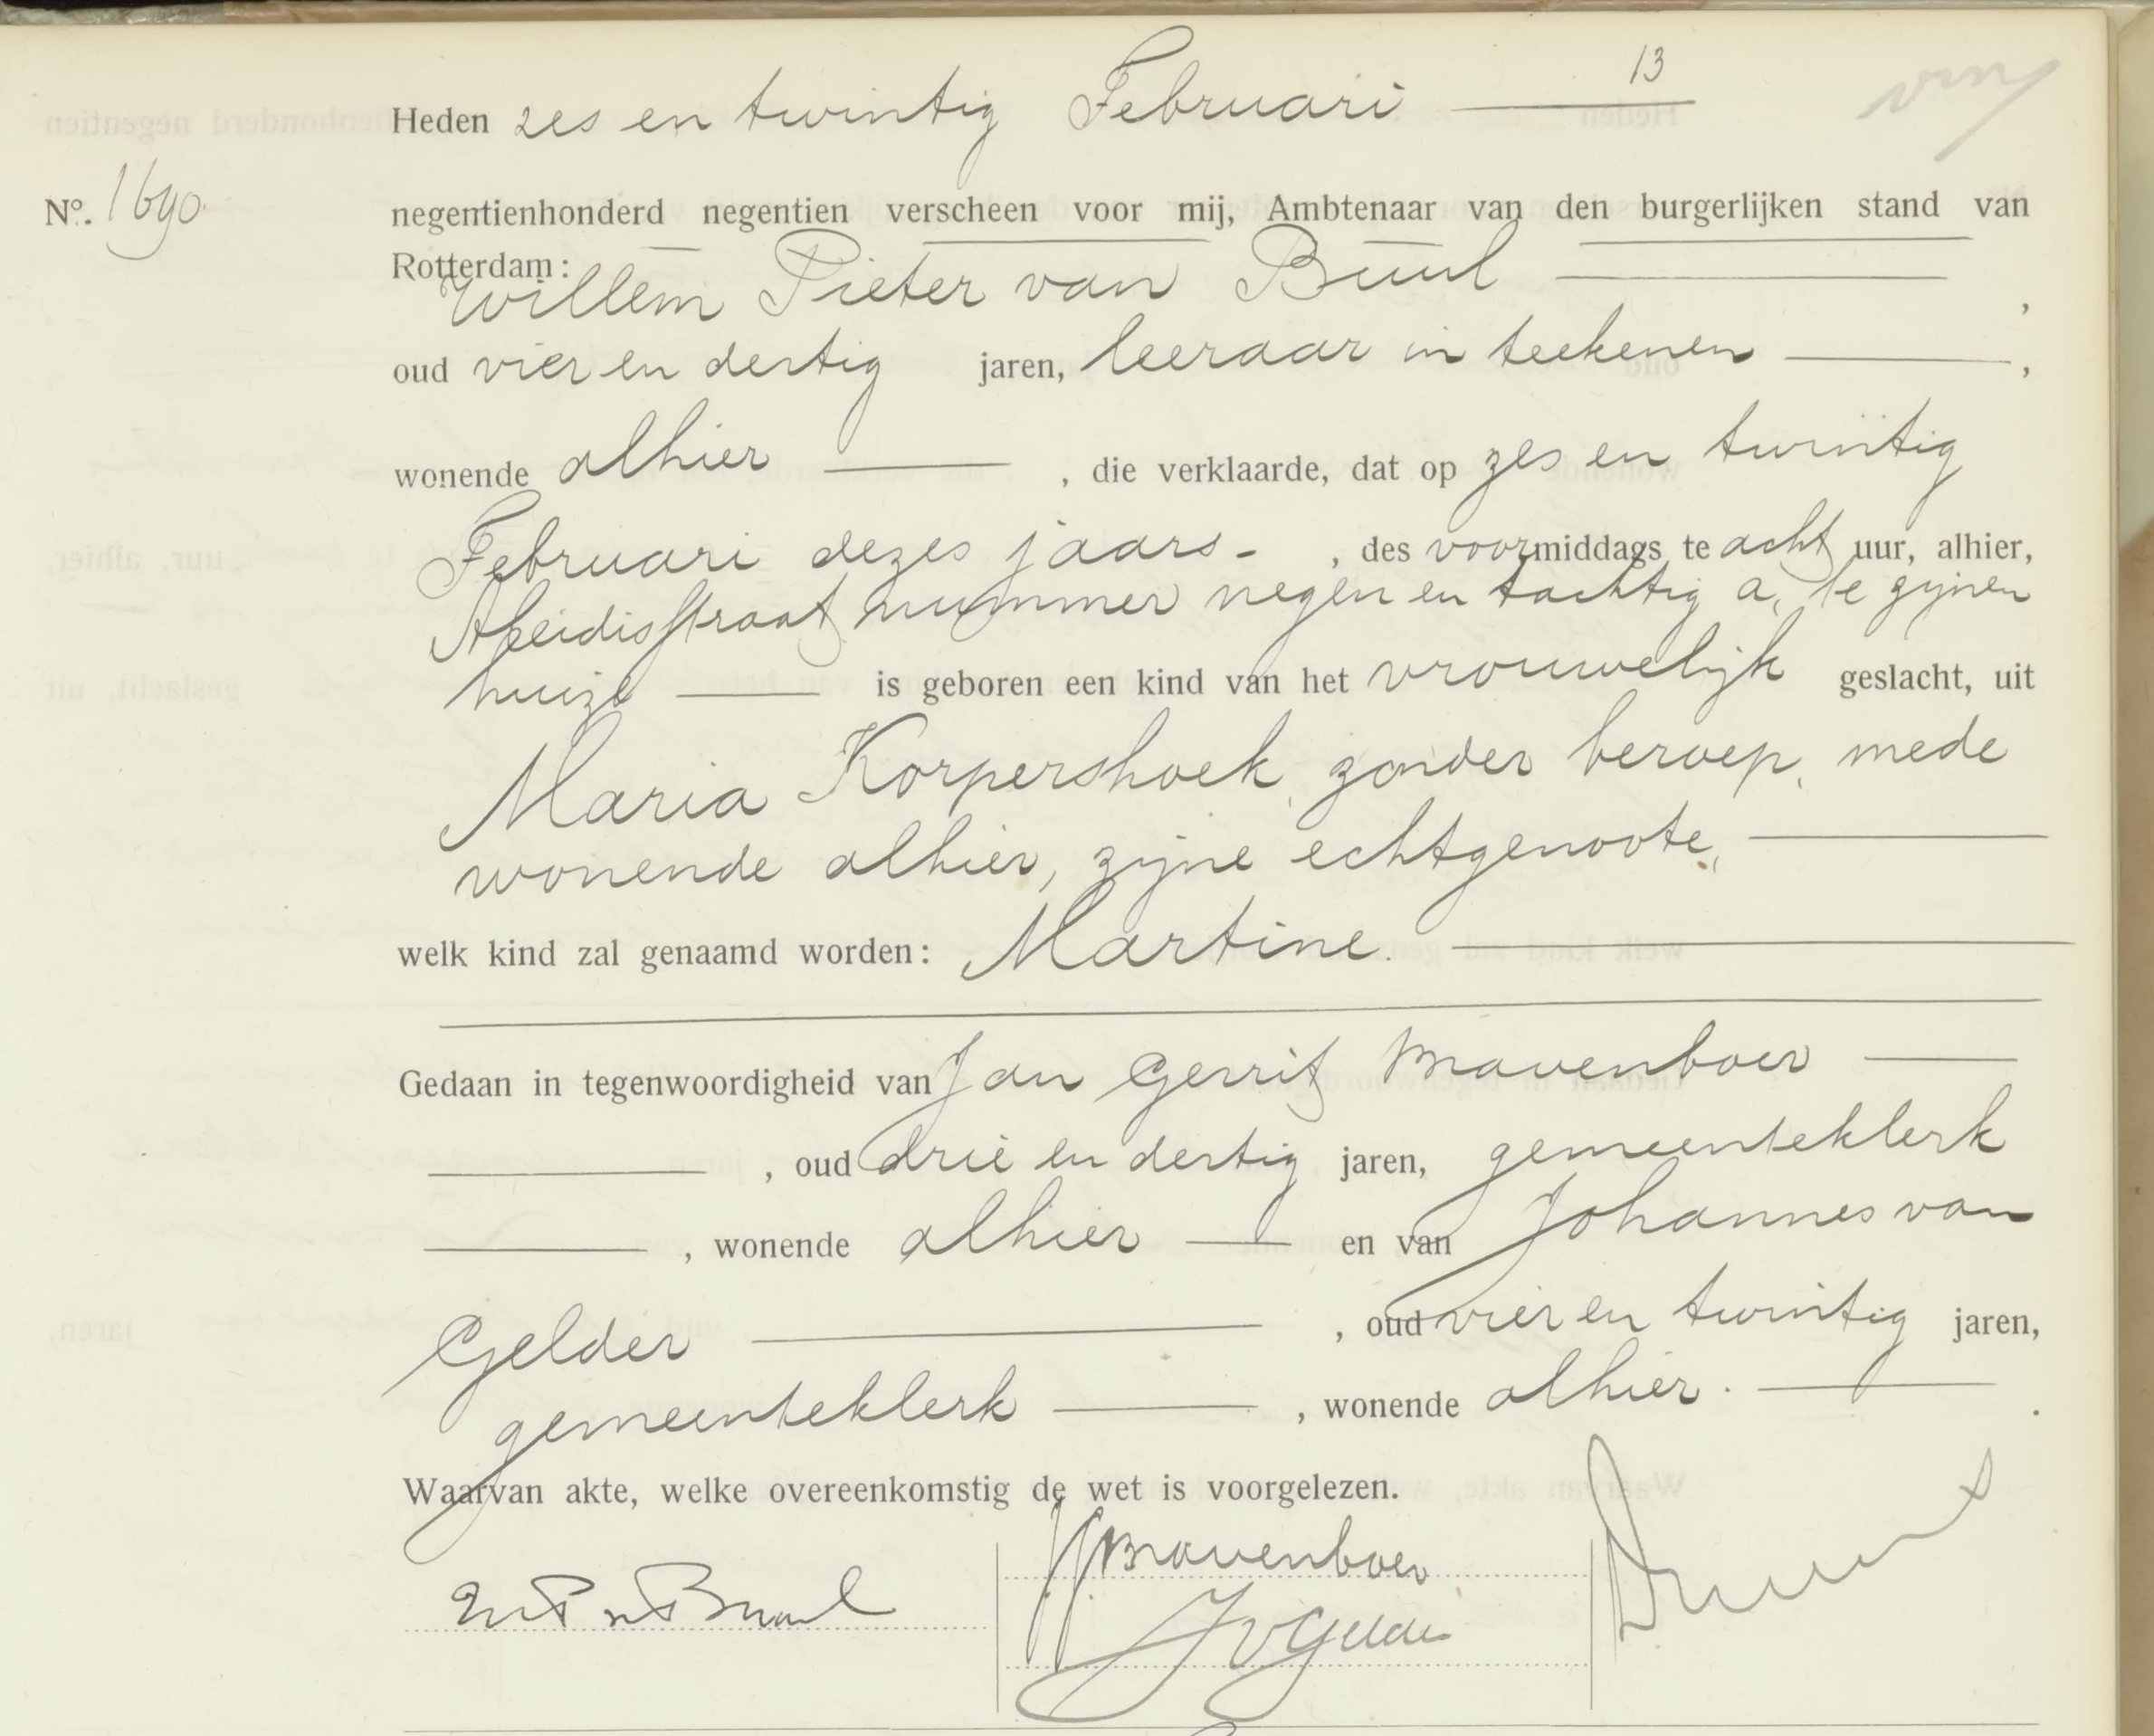 13
Heden zes en twintig Februari
No. 1690
negentienhonderd negentien verscheen voor mij, Ambtenaar van den burgerlijken stand van
Rotterdam:
Willem Pieter van Buul ,
oud vier en dertig jaren, leeraar in teekenen ,
wonende alhier , die verklaarde, dat op zes en twintig
Februari dezes jaars - , des voormiddags te acht uur, alhier,
Aleidisstraat nummer negen en tachtig a, te zijnen
huize is geboren een kind van het vrouwelijk geslacht, uit
Maria Korpershoek, zonder beroep, mede
wonende alhier, zijne echtgenoote,
welk kind zal genaamd worden: Martine.
Gedaan in tegenwoordigheid van Jan Gerrit Mavenboer
, oud drie en dertig jaren, gemeenteklerk
, wonende alhier en van Johannes van
Gelder , oud vier en twintig jaren,
gemeenteklerk , wonende alhier. .
Waarvan akte, welke overeenkomstig de wet is voorgelezen.
WP v Buul
JGMavenboer
JvGelder